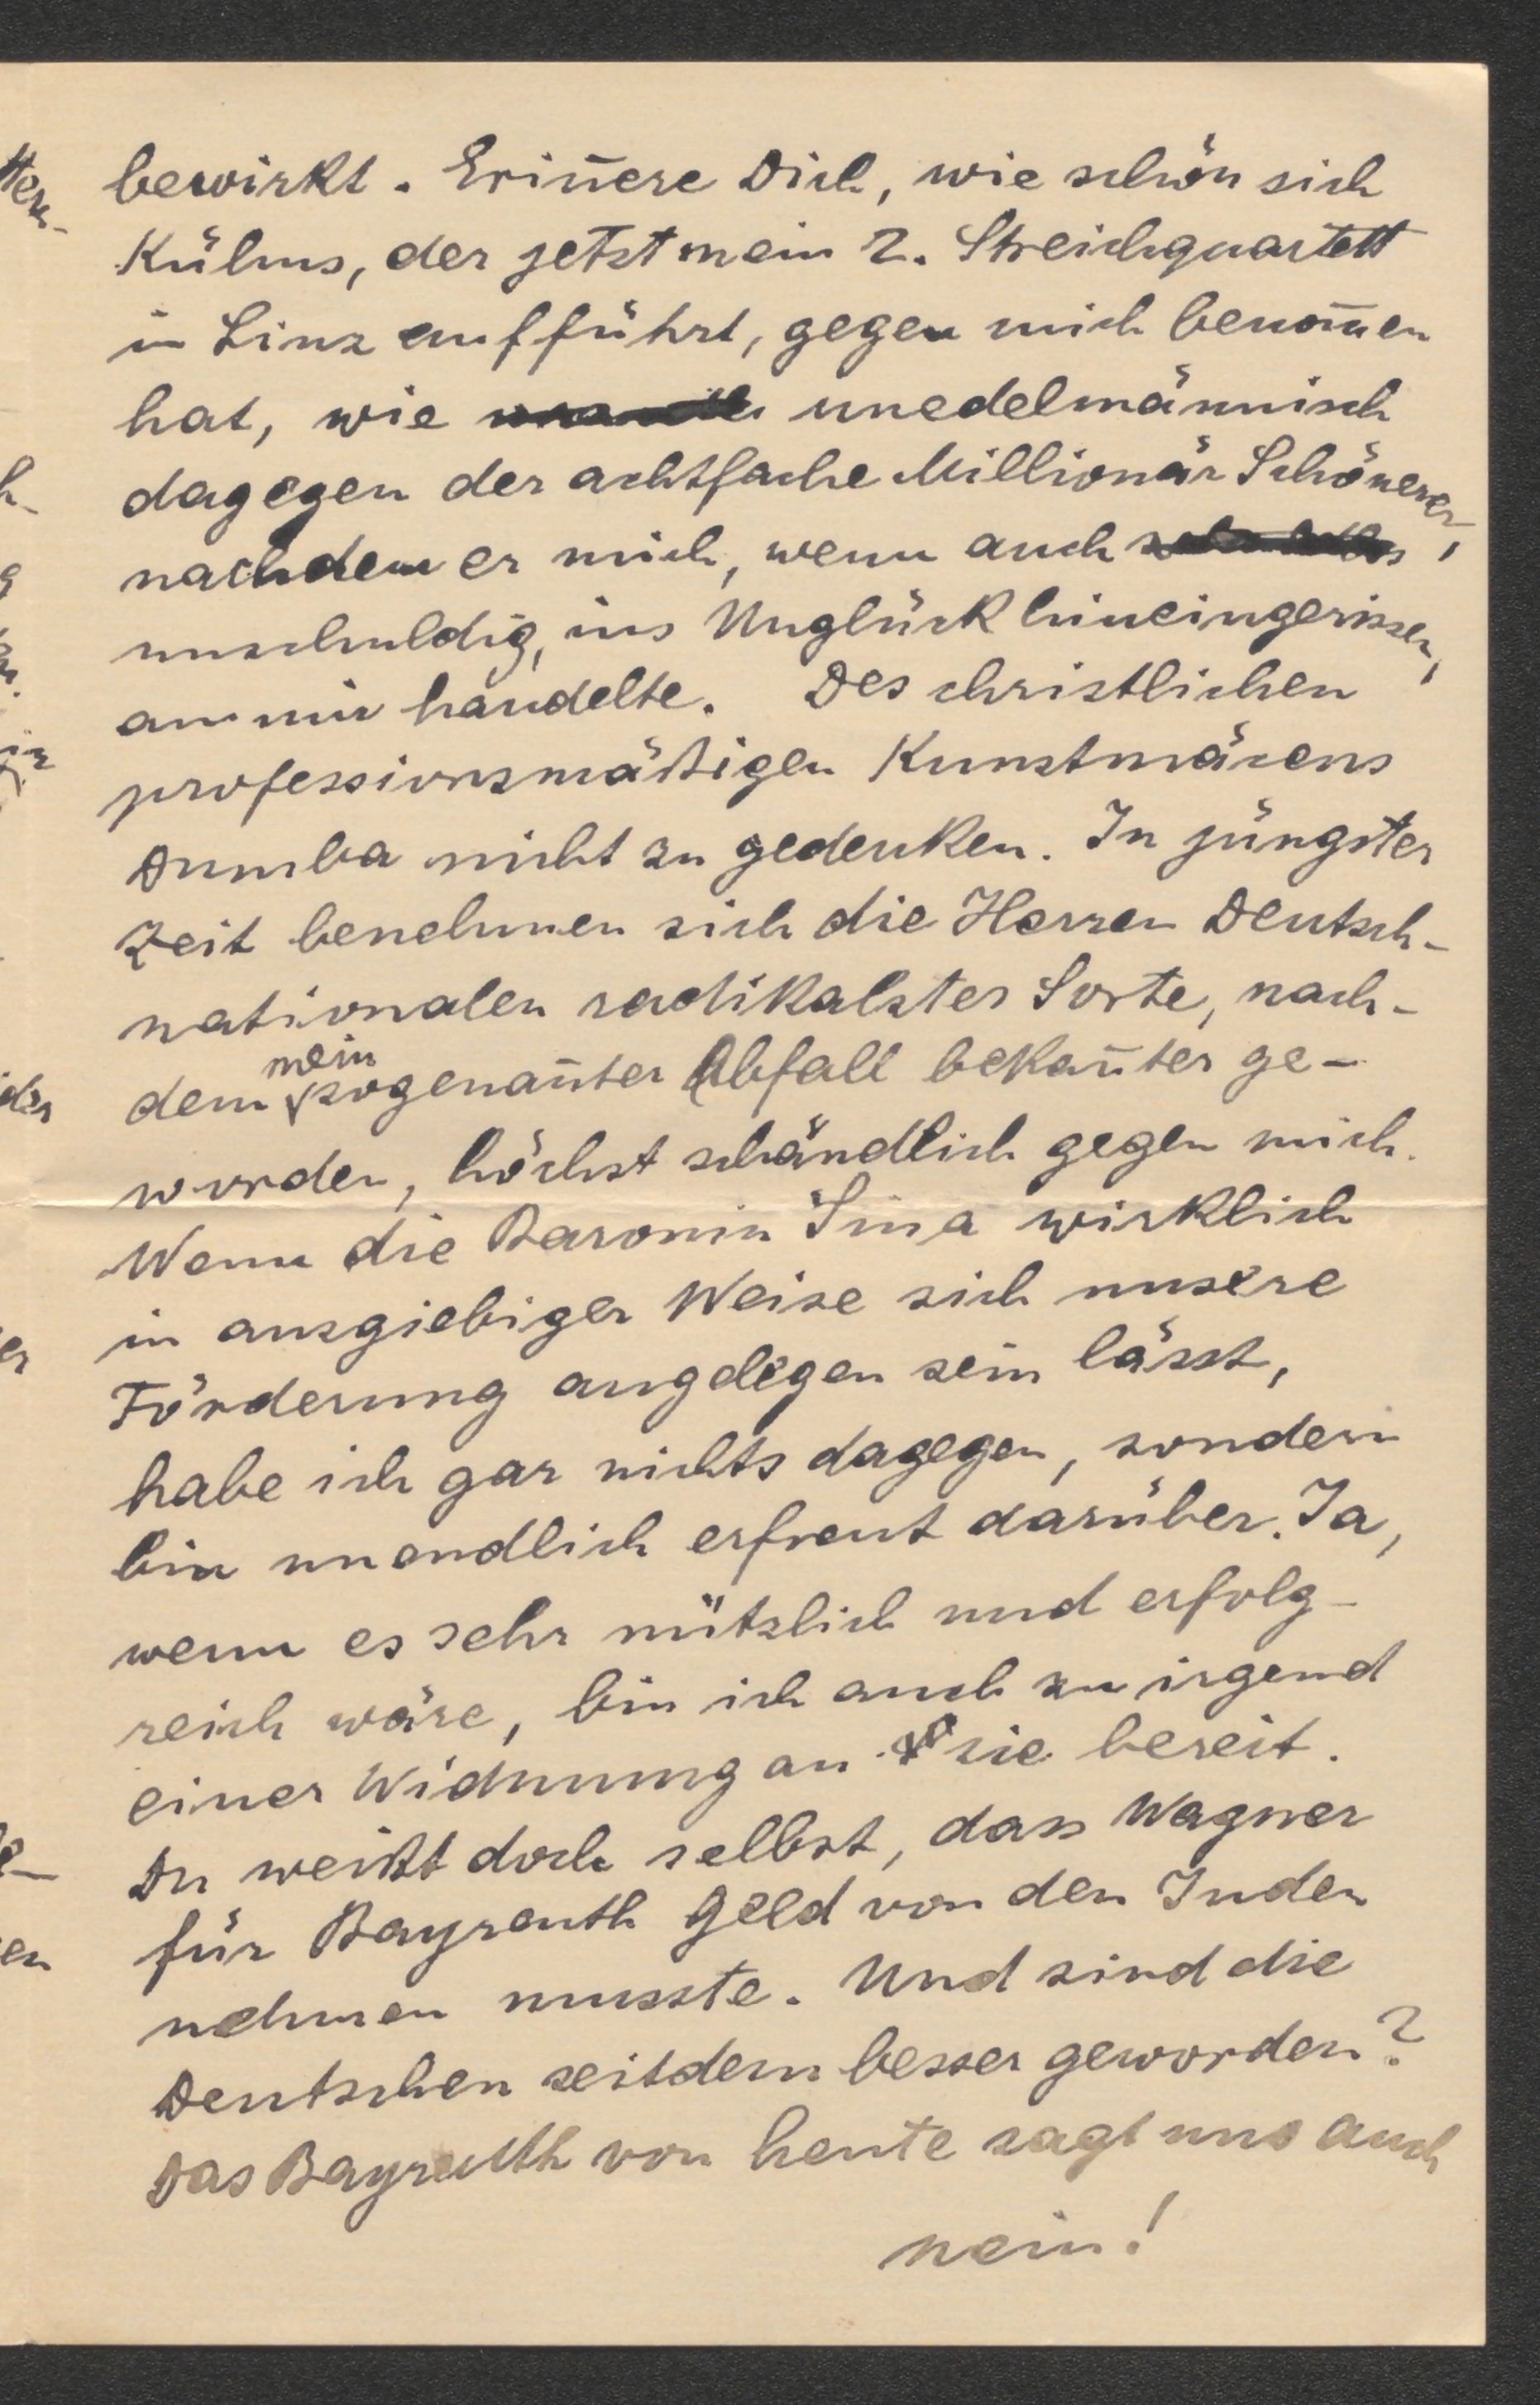 bewirkt. Erin̄ere Dich, wie schön sich
Kulms, der jetzt mein 2. Streichquartett
in Linz aufführt, gegen mich benom̄en
hat, wie unedelmännisch
dagegen der achtfache Millionär Schönerer,
nachdem er mich, wenn auch
unschuldig, ins Unglück hineingerissen,
an mir handelte. Des christlichen
professionsmäßigen Kunstmäcens
Dumba nicht zu gedenken. In jüngster
Zeit benehmen sich die Herren Deutsch-
nationalen radikalster Sorte, nach-
dem mein sogenan̄ter Abfall bekan̄ter ge-
worden, höchst schändlich gegen mich.
Wenn die Baronin Sina wirklich
in ausgiebiger Weise sich unsere
Förderung angelegen sein lässt,
habe ich gar nichts dagegen, sondern
bin unendlich erfreut darüber. Ja,
wenn es sehr nützlich und erfolg-
reich wäre, bin ich auch zu irgend
einer Widmung an sie bereit.
Du weißt doch selbst, dass Wagner
für Bayreuth Geld von den Juden
nehmen musste. Und sind die
Deutschen seitdem besser geworden?
Das Bayreuth von heute sagt uns auch
nein!